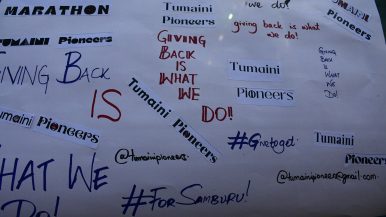 MARATHON
TUMAINI PIONEERS
GIVING BACK
IS
WHAT WE
DO!
Tumaini
Pioneers
we do!
giving back is what
we do!
GIVING
BACK
IS
WHAT
WE
DO!
Tumaini
Pioneers
GIVING
BACK
IS
WHAT
WE
DO!
Tumaini
Pioneers
Tumaini Pioneers
@tumainipioneers
#Gnetogei
Tumaini
Pioneers
@tumainipioneers@gmail.com
#FORSAMBURU!